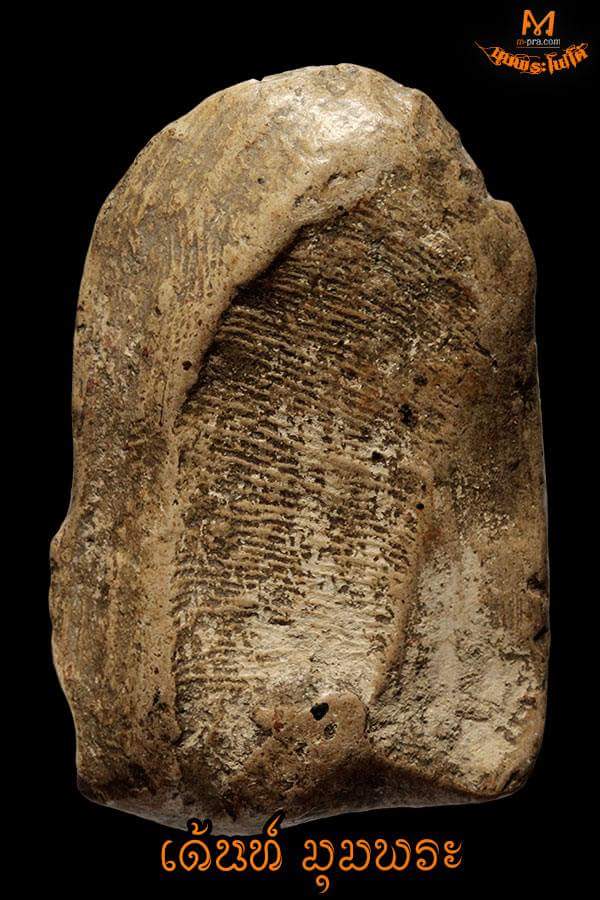 m-pra.com
มุมพระโฟโต้
เด้นท์ มุมพระ